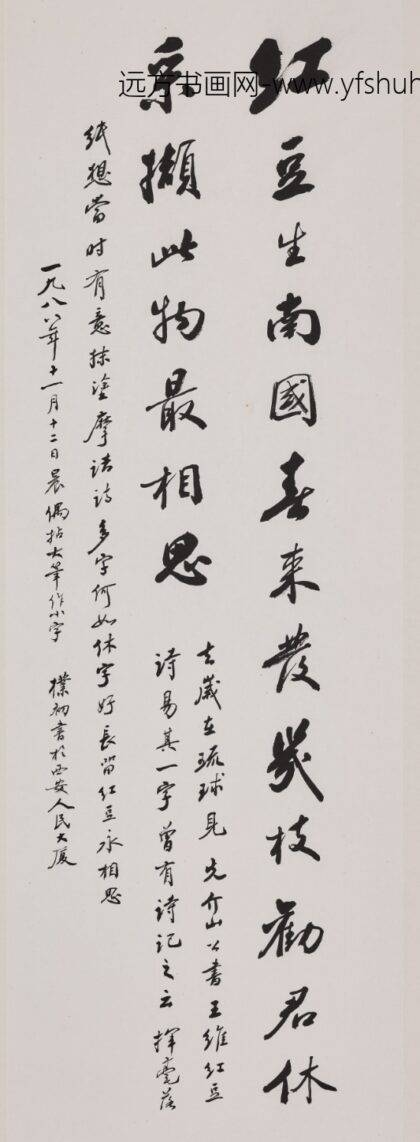 远方书画网-www.yfshuh
红豆生南國春来發几枝勸君休
采擷此物最相思
去歲在琉球見先介山公書王維红豆
詩易其一字曾有詩記之云揮毫落
纸想當时有意抹塗摩诘诗多字何如休字好長留红豆永相思
一九八八年十一月十二日晨偶拈大筆作小字 樸初書於西安人民大厦